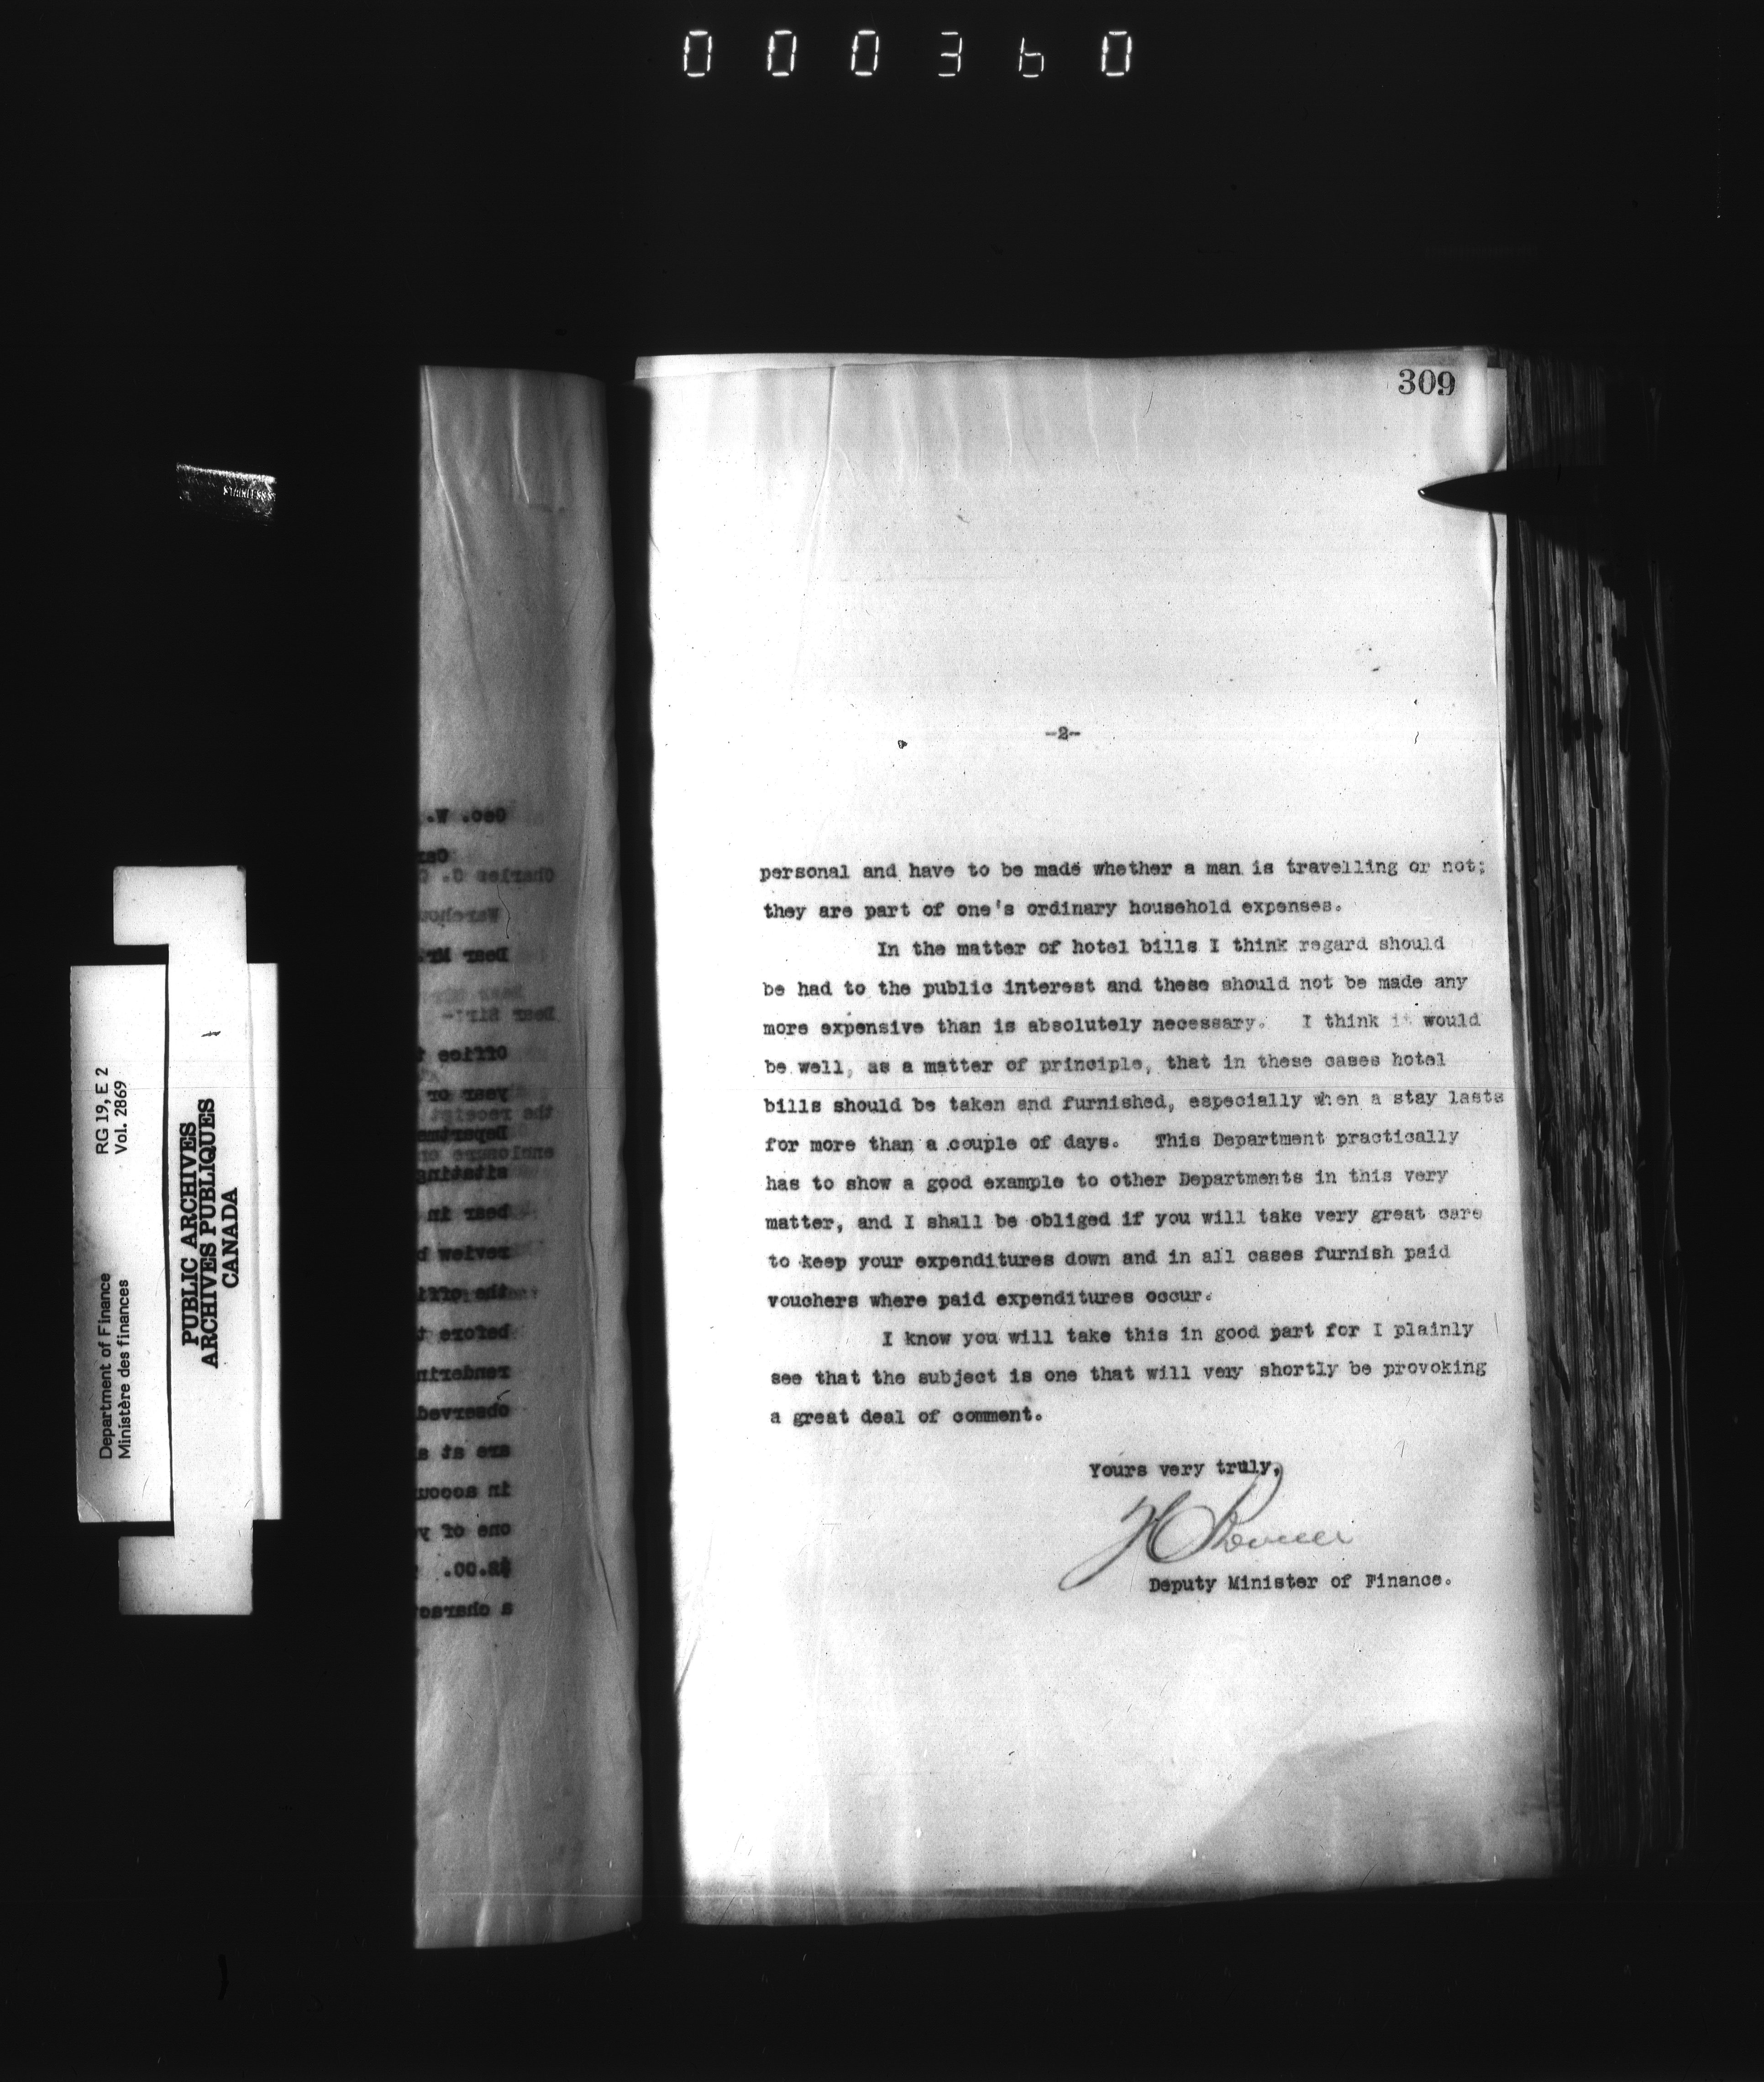 000360
309
-2-
personal and have to be made whether a man is travelling or not;
they are part of one's ordinary household expenses.
In the matter of hotel bills I think regard should
be had to the public interest and these should not be made any
more expensive than is absolutely necessary. I think it would
be well, as a matter of principle, that in these cases hotel
bills should be taken and furnished, especially when a stay lasts
for more than a couple of days. This Department practically
has to show a good example to other Departments in this very
matter, and I shall be obliged if you will take very great care
to keep your expenditures down and in all cases furnish paid
vouchers where paid expenditures occur.
I know you will take this in good part for I plainly
see that the subject is one that will very shortly be provoking
a great deal of comment.
Yours very truly,
Deputy Minister of Finance.
Department of Finance RG 19, E 2
Ministère des finances Vol. 2869
PUBLIC ARCHIVES
ARCHIVES PUBLIQUES
CANADA
Geo. W.
Charles C.
Warehou
Dear Mr.
Dear Sir:-
Office
year or
the receipt
Departme
enclosure
sitating
bear in
review
the offi
before
renderin
observed
are at
in accou
one of y
$2.00.
a charac